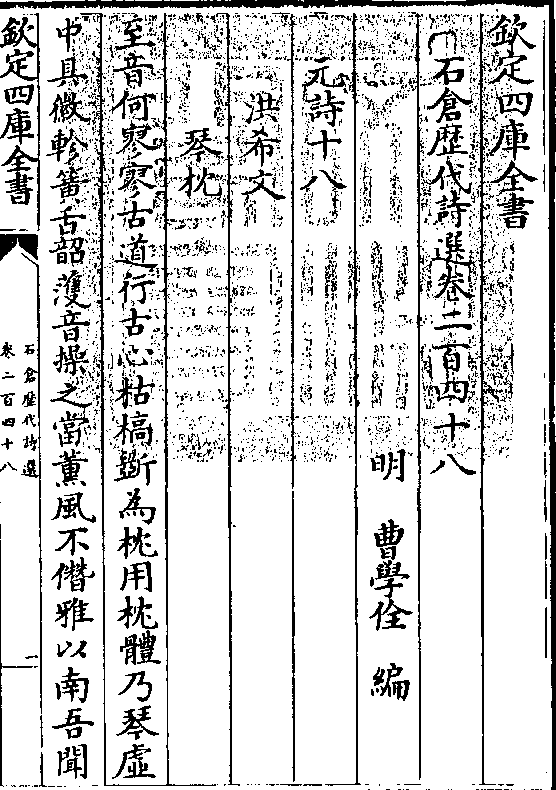 欽定四庫全書
石倉歴代詩選卷二百四十八
明 曹學佺 編
元詩十八
洪希文
琴枕
至音何寥寥古道行古心枯槁斵為枕用枕體乃琴虛
中具徽軫簧舌韶濩音操之當薰風不僭雅以南吾聞
欽定四庫全書
石倉歴代詩選
卷二百四十八
一